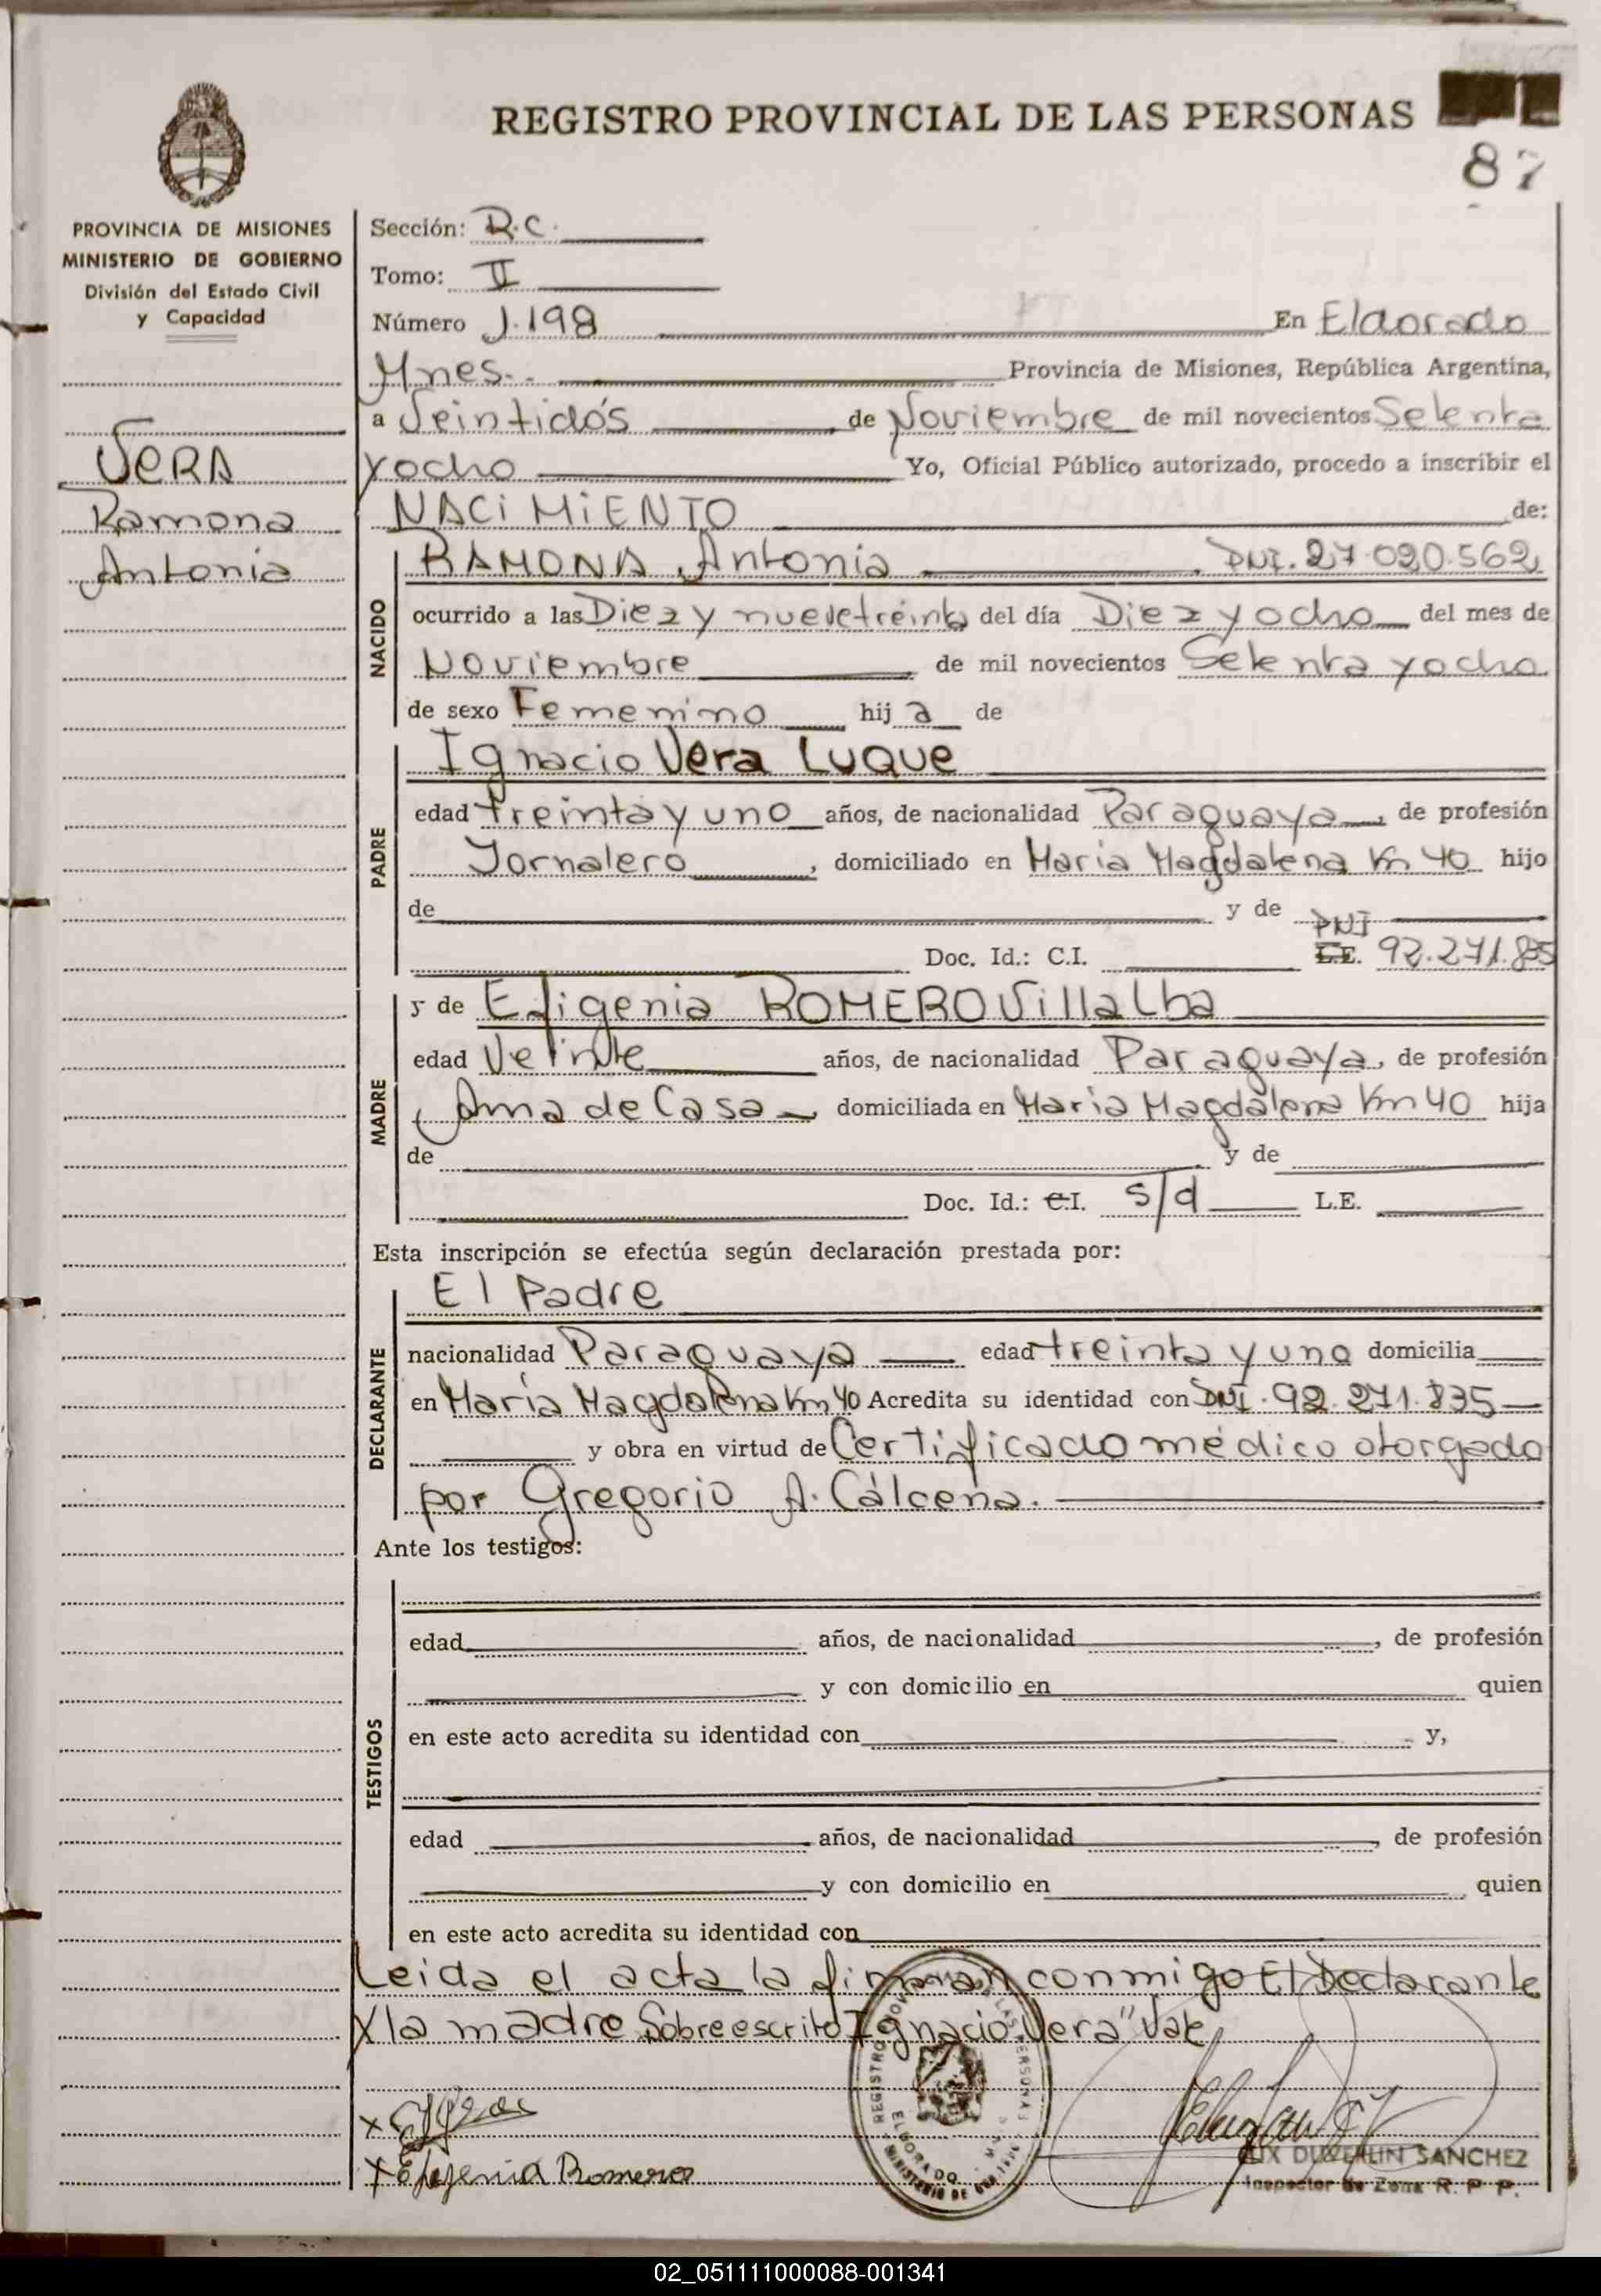 REGISTRO PROVINCIAL DE LAS PERSONAS
87
PROVINCIA DE MISIONES
MINISTERIO DE GOBIERNO
División del Estado Civil
y Capacidad
VERA
Ramona
Antonia
Sección: R.C.
Tomo: II
Número J.198 En Eldorado
Mnes. Provincia de Misiones, República Argentina,
a Veintidós de Noviembre de mil novecientos Setenta
yocho Yo, Oficial Público autorizado, procedo a inscribir el
NACIMIENTO de:
NACIDO
RAMONA Antonia DNI. 27.020.562
ocurrido a las Diez y nuevetreinta del día Diez y ocho del mes de
Noviembre de mil novecientos Setenta yocho
de sexo Femenino hij a de
PADRE
Ignacio Vera LUQUE
edad treinta y uno años, de nacionalidad Paraguaya, de profesión
Jornalero, domiciliado en María Magdalena Km 40 hijo
de y de
Doc. Id.: C.I. DNI L.E. 92.271.835
MADRE
y de Efigenia ROMERO Villalba
edad Veinte años, de nacionalidad Paraguaya, de profesión
Ama de Casa domiciliada en María Magdalena Km 40 hija
de y de
Doc. Id.: C.I. s/d L.E.
Esta inscripción se efectúa según declaración prestada por:
DECLARANTE
El Padre
nacionalidad Paraguaya edad treinta y uno domicilia
en María Magdalena Km 40 Acredita su identidad con DNI. 92.271.835
y obra en virtud de Certificado médico otorgado
por Gregorio A. Cálcena.
Ante los testigos:
TESTIGOS
edad años, de nacionalidad, de profesión
y con domicilio en quien
en este acto acredita su identidad con y,
edad años, de nacionalidad, de profesión
y con domicilio en quien
en este acto acredita su identidad con
Leida el acta la firman conmigo El Declarante
y la madre Sobreescrito Ignacio Vera" Vale
x
x Efigenia Romero
REGISTRO PROVINCIAL DE LAS PERSONAS
ELDORADO
MINISTERIO DE
SANCHEZ
Inspector de Zona R. P. P.
02_051111000088-001341